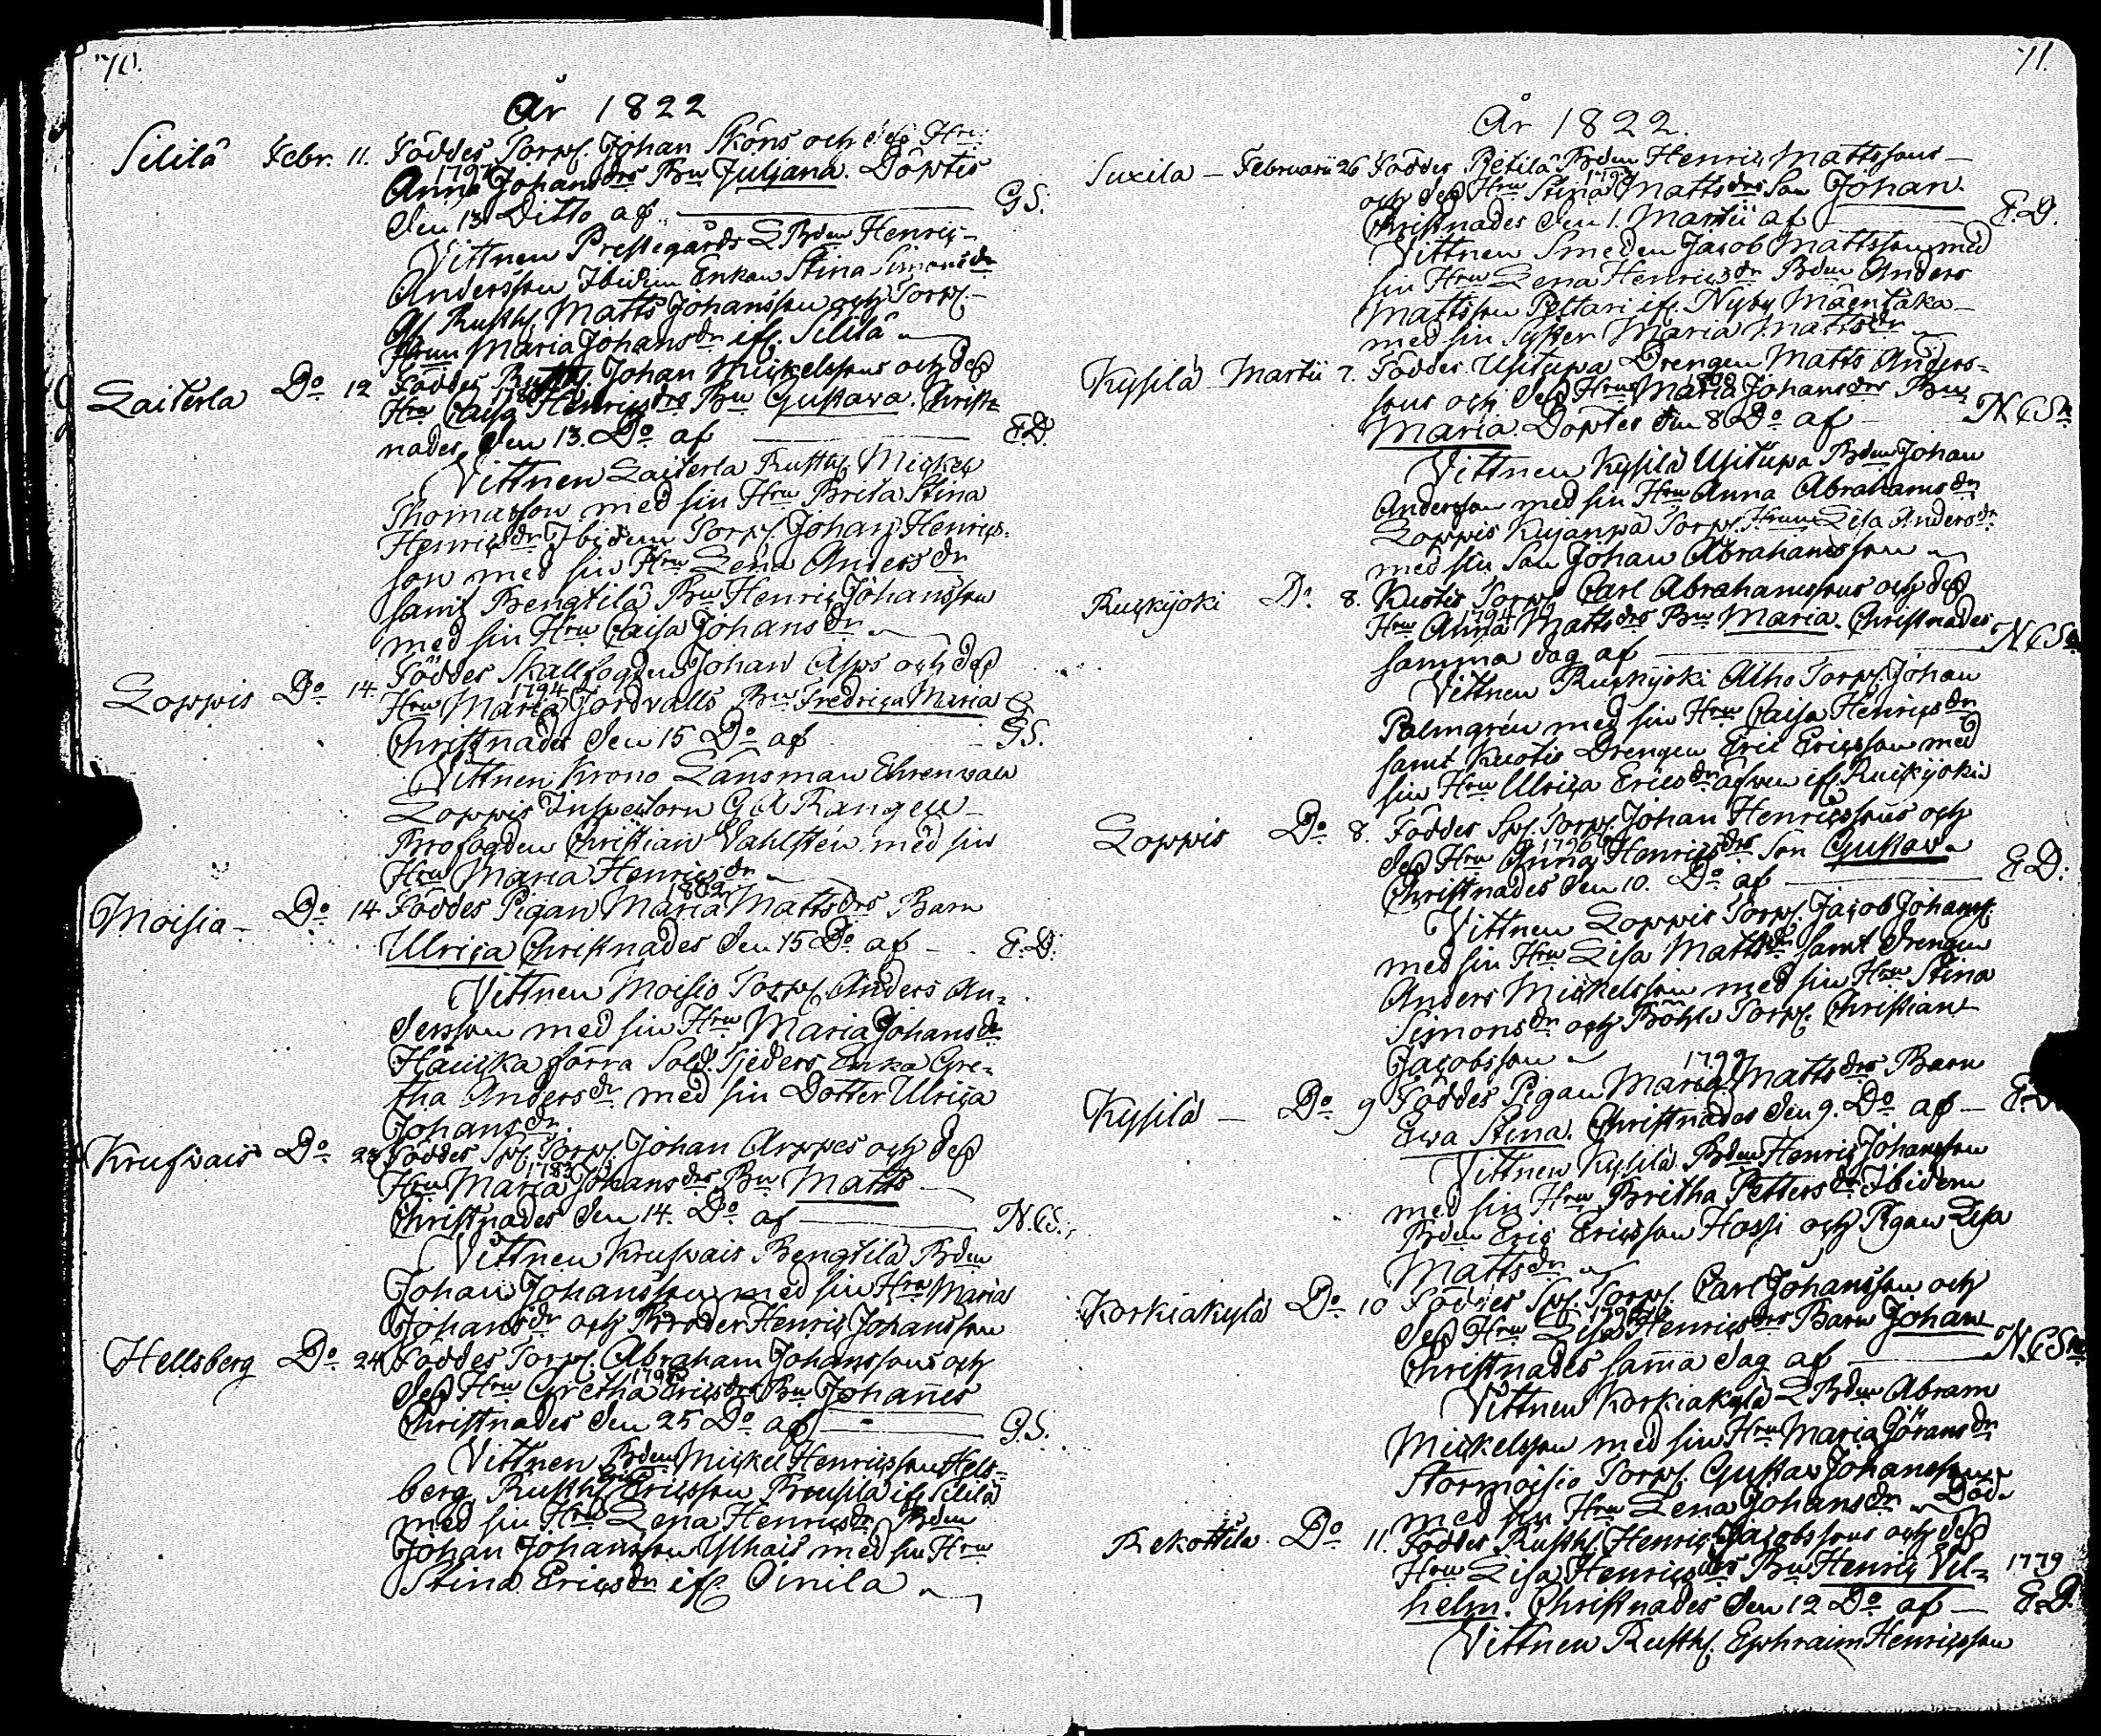 70.
År 1822
Sililä Febr. 11. Föddes Torp. Johan Sköns och dess Hru
1797
Anna Johansdrs Bn Juljana. Döptes
den 13 Ditto af G.S.
Vittnen Prestegårds L Bden Henric
Andersson Ibidem Enkan Stina Simonsdr
Af Rusth. Matts Johansson och Torp.
Hrun Maria Johansdr if. Sililä
Laiterla Do 12 Föddes Rusth. Johan Mickelssons och dess
Hru Caisa Henricsdrs Bn Gustava. Christ=
nades den 13. Do af E.D.
Vittnen Laiterla Rusth. Mickel
Thomasson med sin Hru Brita Stina
Henricsdr Ibidem Torp. Johan Henrics=
son med sin Hru Lena Andersdr
samt Bengtilä Bn Henric Johansson
med sin Hru Caisa Johansdr
Loppis Do 14. Föddes Skallfogden Johan Alps och dess
1794
Hru Maria Jordvalls Bn Fredrica Maria
Christnades den 15 Do af G.S.
Vittnen Krono Länsman Ehrenwall
Loppis Inspectorn G A Rangell
Brofogden Christian Vahlstén med sin
Hru Maria Henricsdr
1802
Moisia Do 14 Föddes Pigan Maria Mattsdrs Barn
Ulrica Christnades den 15 Do af E.D.
Vittnen Moisio Torp. Anders An=
dersson med sin Hru Maria Johansdr
Hauska förra Sold. Tjeders Enka Gre=
tha Andersdr med sin Dotter Ulrica
Johansdr
Krusvais Do 23 Föddes Sp. Torp. Johan Arppes och dess
1783
Hru Maria Johansdrs Bn Matts
Christnades den 14. Do af N.C.S.
Vittnen Krusvais Bengtilä Bden
Johan Johansson med sin Hru Maria
Johansdr och Broder Henric Johansson
Hellsberg Do 24 Föddes Torp. Abraham Johanssons och
dess Hru Gretha Ericsdrs Bn Johannes
Christnades den 25 Do af G.S.
Vittnen Bden Mickel Henricsson Hels=
berg Rusth. Eric Ericsson Prusila if. Sililä
med sin Hru Lena Henricsdr Bden
Johan Johansson Ylhais med sin Hru
Stina Ericsdr if. Oinila
71.
År 1822.
Suxila Februarii 26 Föddes Pietilä Bden Henric Mattssons
och dess Hru Stina Mattsdrs Son Johan
Christnades den 1. Martii af E.D.
Vittnen Smeden Jacob Mattsson med
sin Hru Lena Henricsdr Bden Anders
Mattsson Pettari if. Nyby Mäentaka
med sin Syster Maria Mattsdr
Kysilä Martii 7. Föddes Usitupa Drengen Matts Anders=
sons och dess Hrus Maria Johansdrs Bn
Maria. Döptes den 8 Do af N C Sn
Vittnen Kysilä Usitupa Bden Johan
Andersson med sin Hru Anna Abrahamsdr
Loppis Kujanpä Torp. Hrun Lisa Andersdr
med sin Son Johan Abrahamsson
Ruskijoki Do 8. Kuotis Torp. Carl Abrahamssons och dess
1794
Hru Anna Mattsdrs Bn Maria. Christnades
samma dag af N C Sn
Vittnen Ruskijoki Alho Torp. Johan
Palmgrén med sin Hru Caisa Henricsdr
samt Kuotis Drengen Eric Ericsson med
sin Hru Ulrica Ericsdr äfven if. Ruskijoki
Loppis Do 8. Föddes Sp. Torp. Johan Henricssons och
1796
dess Hru Anna Henricsdrs Son Gustav
Christnades den 10. Do af E D.
Vittnen Loppis Torp. Jacob Johanss.
med sin Hru Lisa Mattsdr samt drengen
Anders Mickelsson med sin Hru Stina
Simonsdr och Böhle Torp. Christian
Jacobsson
1799
Kysilä Do 9 Föddes Pigan Maria Mattsdrs Barn
Ewa Stina. Christnades den 9. Do af
Vittnen Kysilä Bden Henric Johansson
med sin Hru Britha Pettersdr Ibidem
Bden Eric Ericsson Hossi och Pigan Lisa
Mattsdr
Korkiakylä Do 10 Föddes Sp. Torp. Carl Johansson och
dess Hru Lisa Henricsdrs Barn Johan
Christnades samma dag af N C Sn
Vittnen Korkiakylä L Bden Abram
Mickelsson med sin Hru Maria Göransdr
Stormoisio Torp. Gustav Johansson
med sin Hru Lena Johansdr Död
Rekottila Do 11. Föddes Rusth. Henric Jacobssons och dess
Hru Lisa Henricsdrs Bn Henric Vil= 1779
helm. Christnades den 12 Do af E.D.
Vittnen Rusth. Ephraim Henricsson